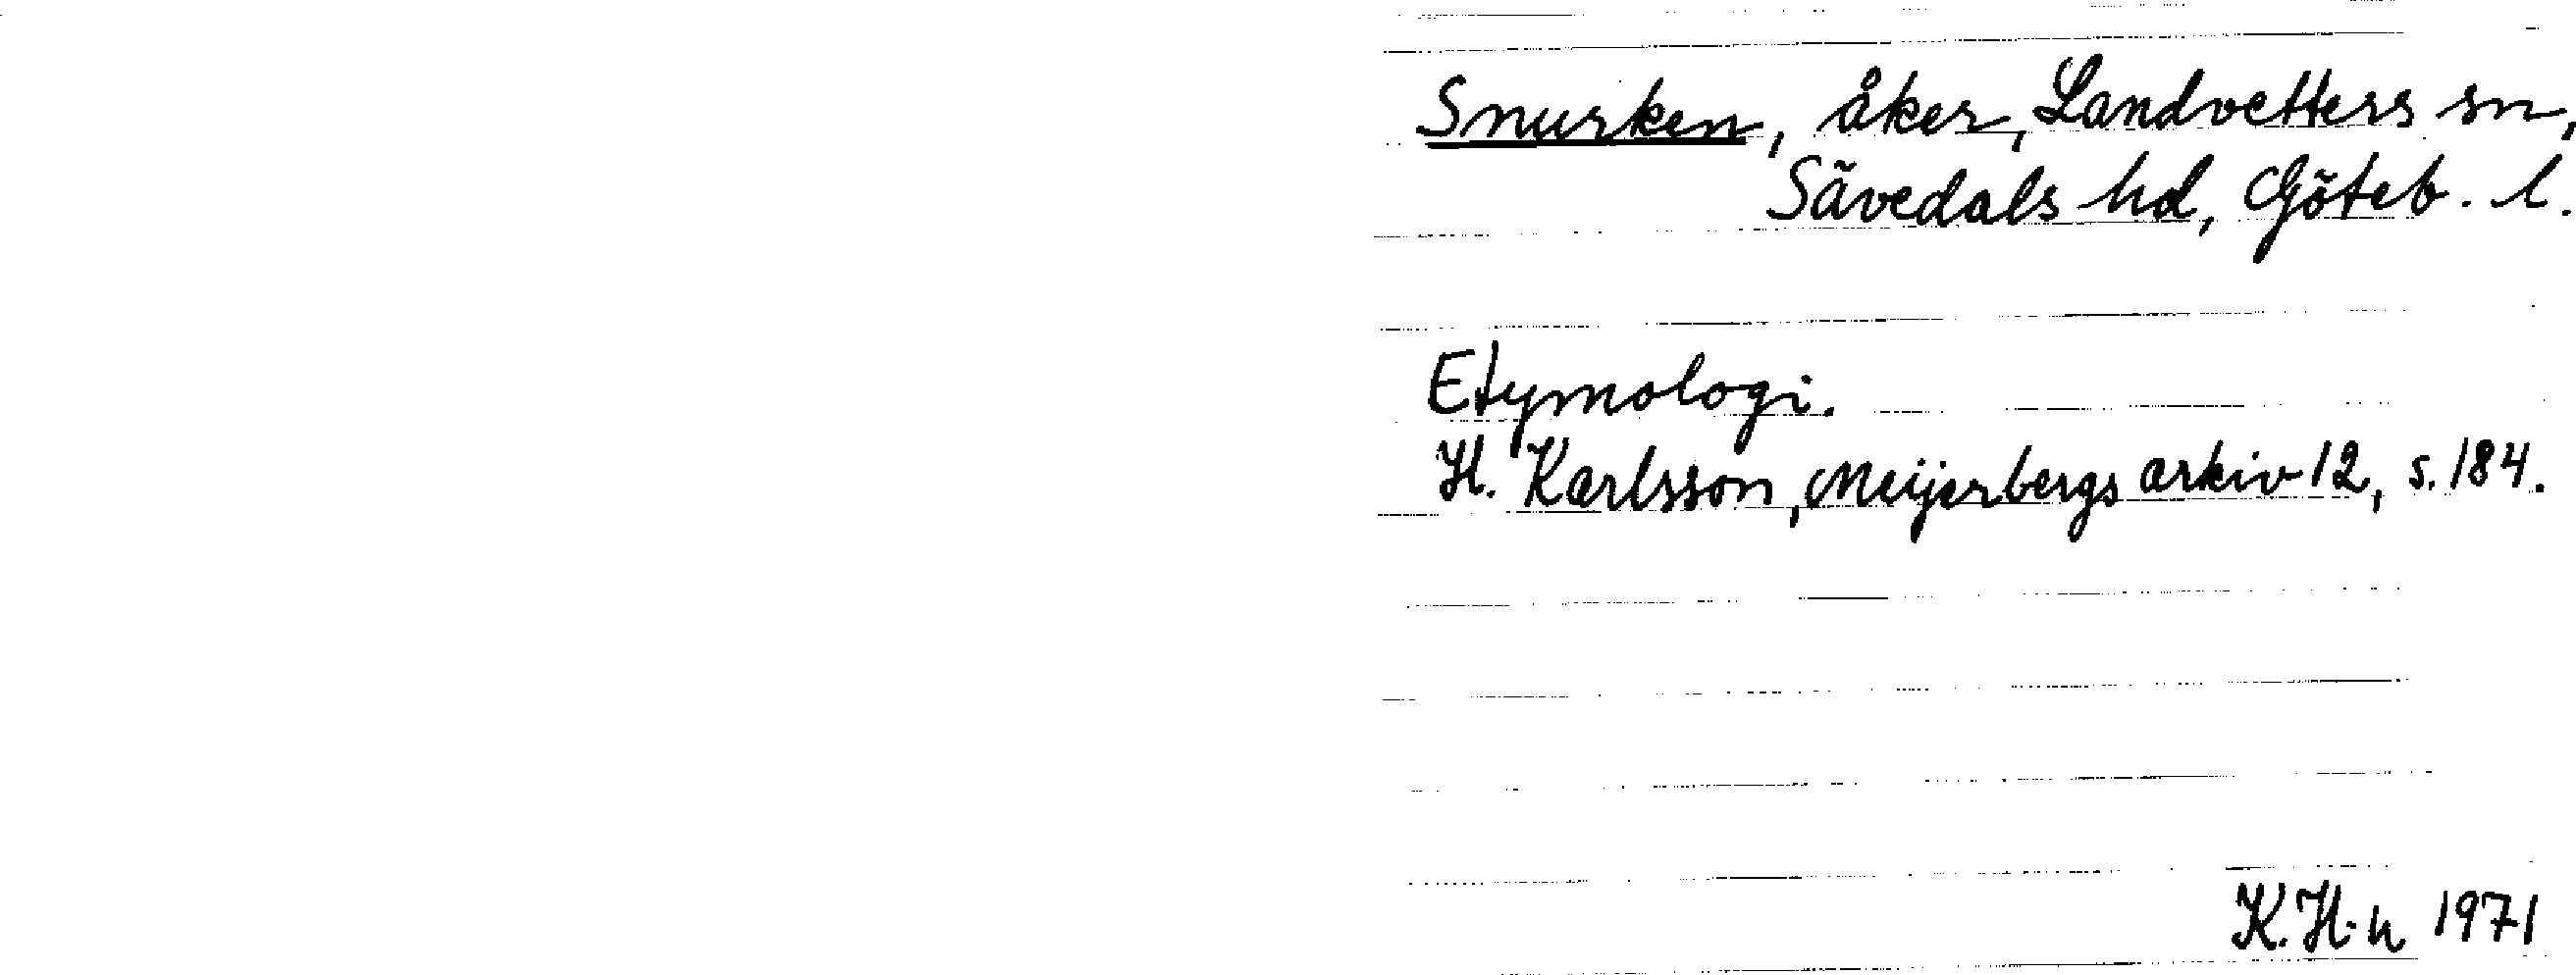 Snurken, åker, Landvetters sn,
Sävedals hd, Göteb. l.
Etymologi.
H. Karlsson, Meijerbergs arkiv 12, s. 184.
K. H-n 1971